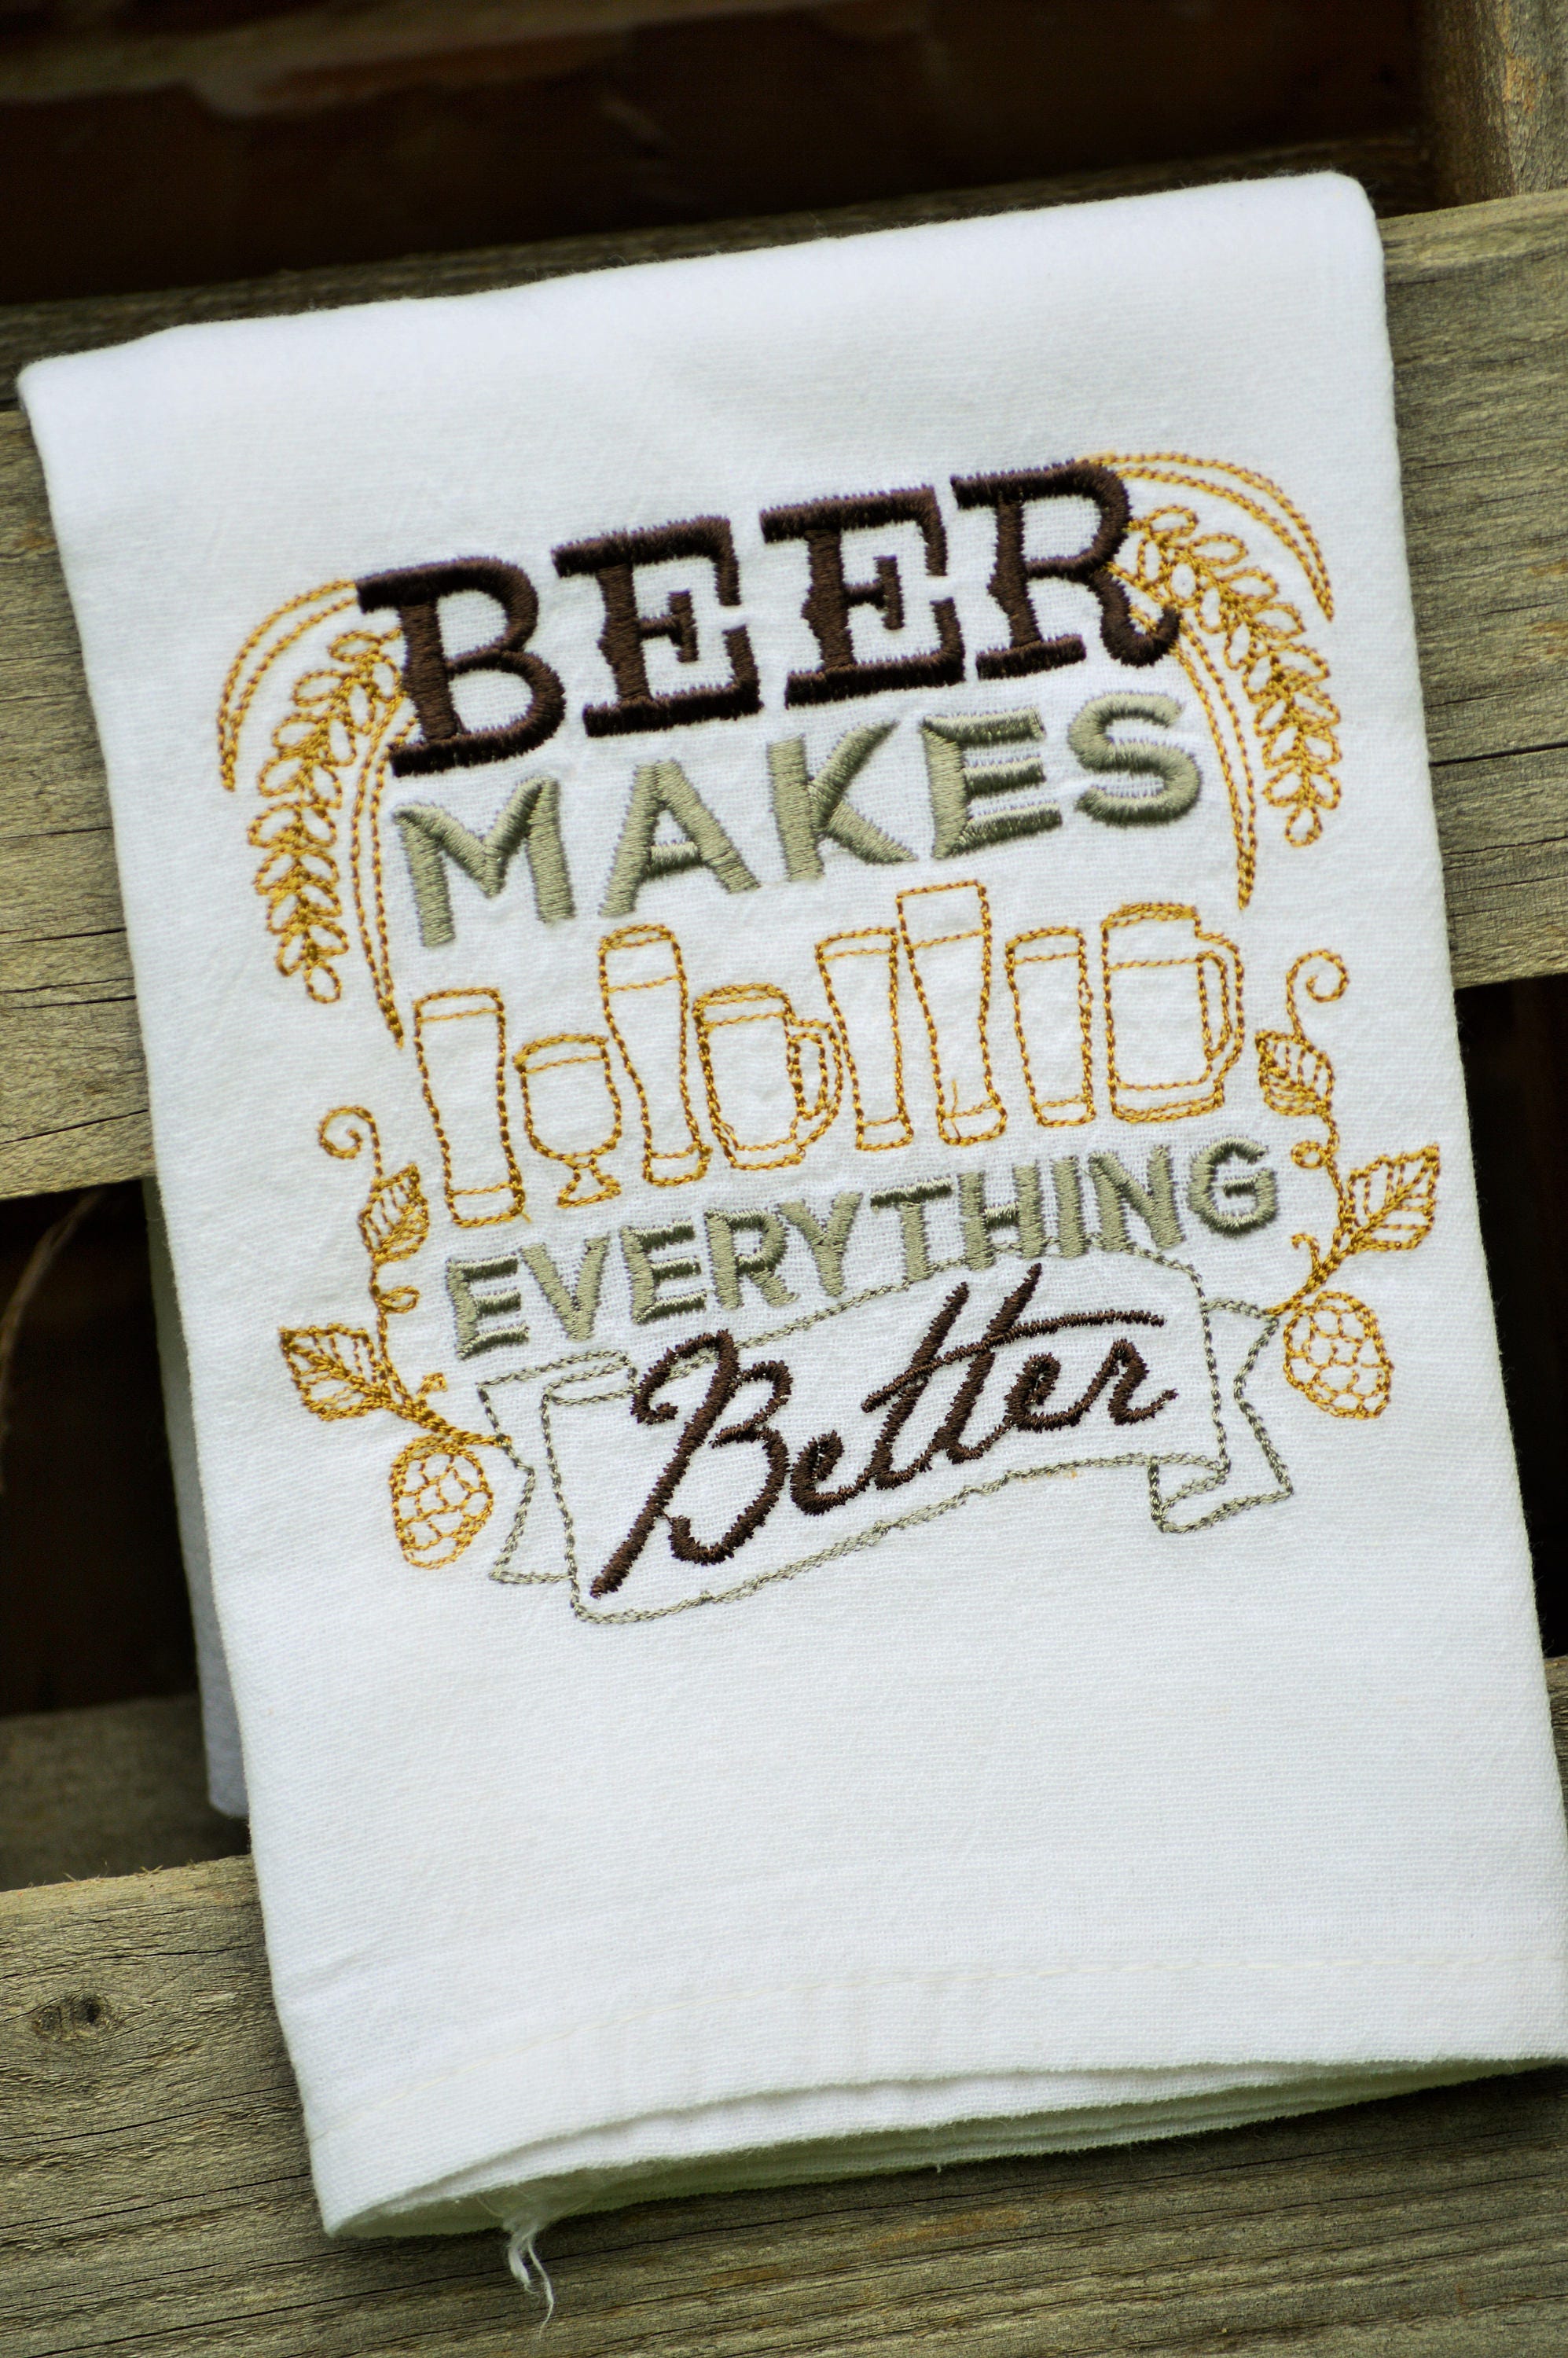 BEER
MAKES
EVERYTHING
Better